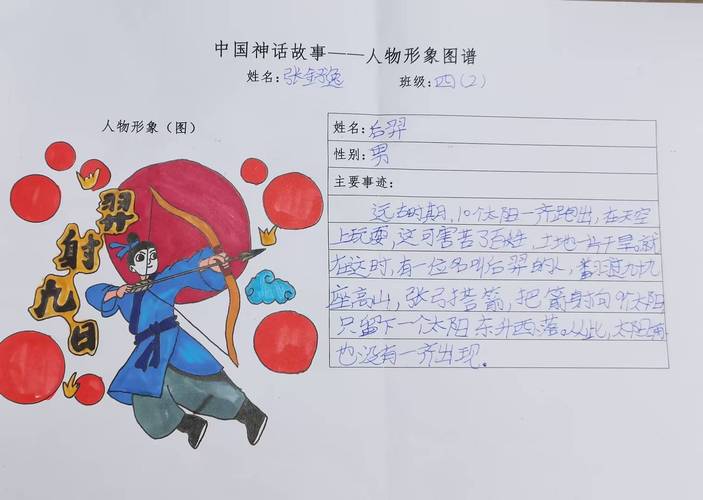 中国神话故事——人物形象图谱
姓名:张钰逸 班级:四(2)
人物形象(图)
羿射九日
姓名:后羿
性别:男
主要事迹:
远古时期,10个太阳一齐跑出,在天空
上玩耍,这可害苦了百姓,土地一片干旱,就
在这时,有一位名叫后羿的人,翻过九十九
座高山,张弓搭箭,把箭射向9个太阳
只留下一个太阳东升西落。从此,太阳再
也没有一齐出现。